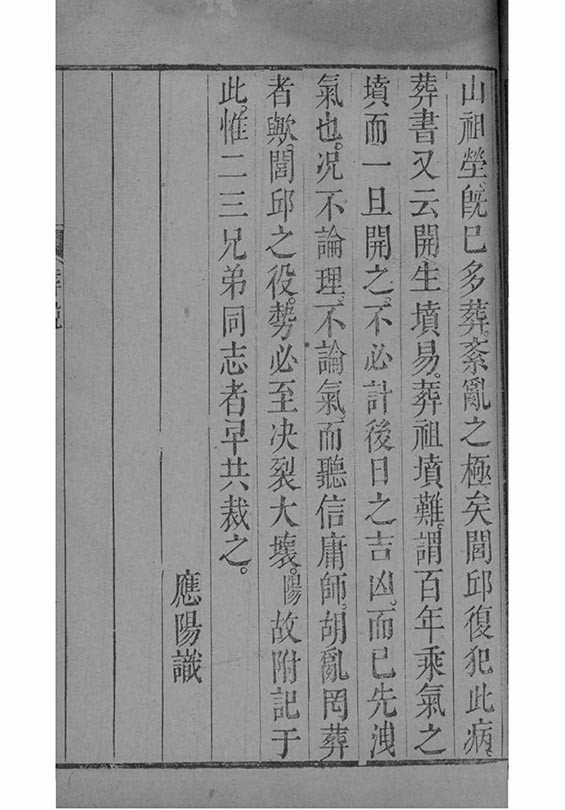 山祖塋。旣已多葬。紊亂之極矣閭邱復犯此病。
葬書又云開生墳易。葬祖墳難。謂百年乘氣之
墳而一旦開之。不必計後日之吉凶。而已先洩
氣也。况不論理。不論氣。而聽信庸師。胡亂罔葬
者歟。閭邱之役。勢必至决裂大壞。陽故附記于
此。惟二三兄弟同志者早共裁之。
應陽識